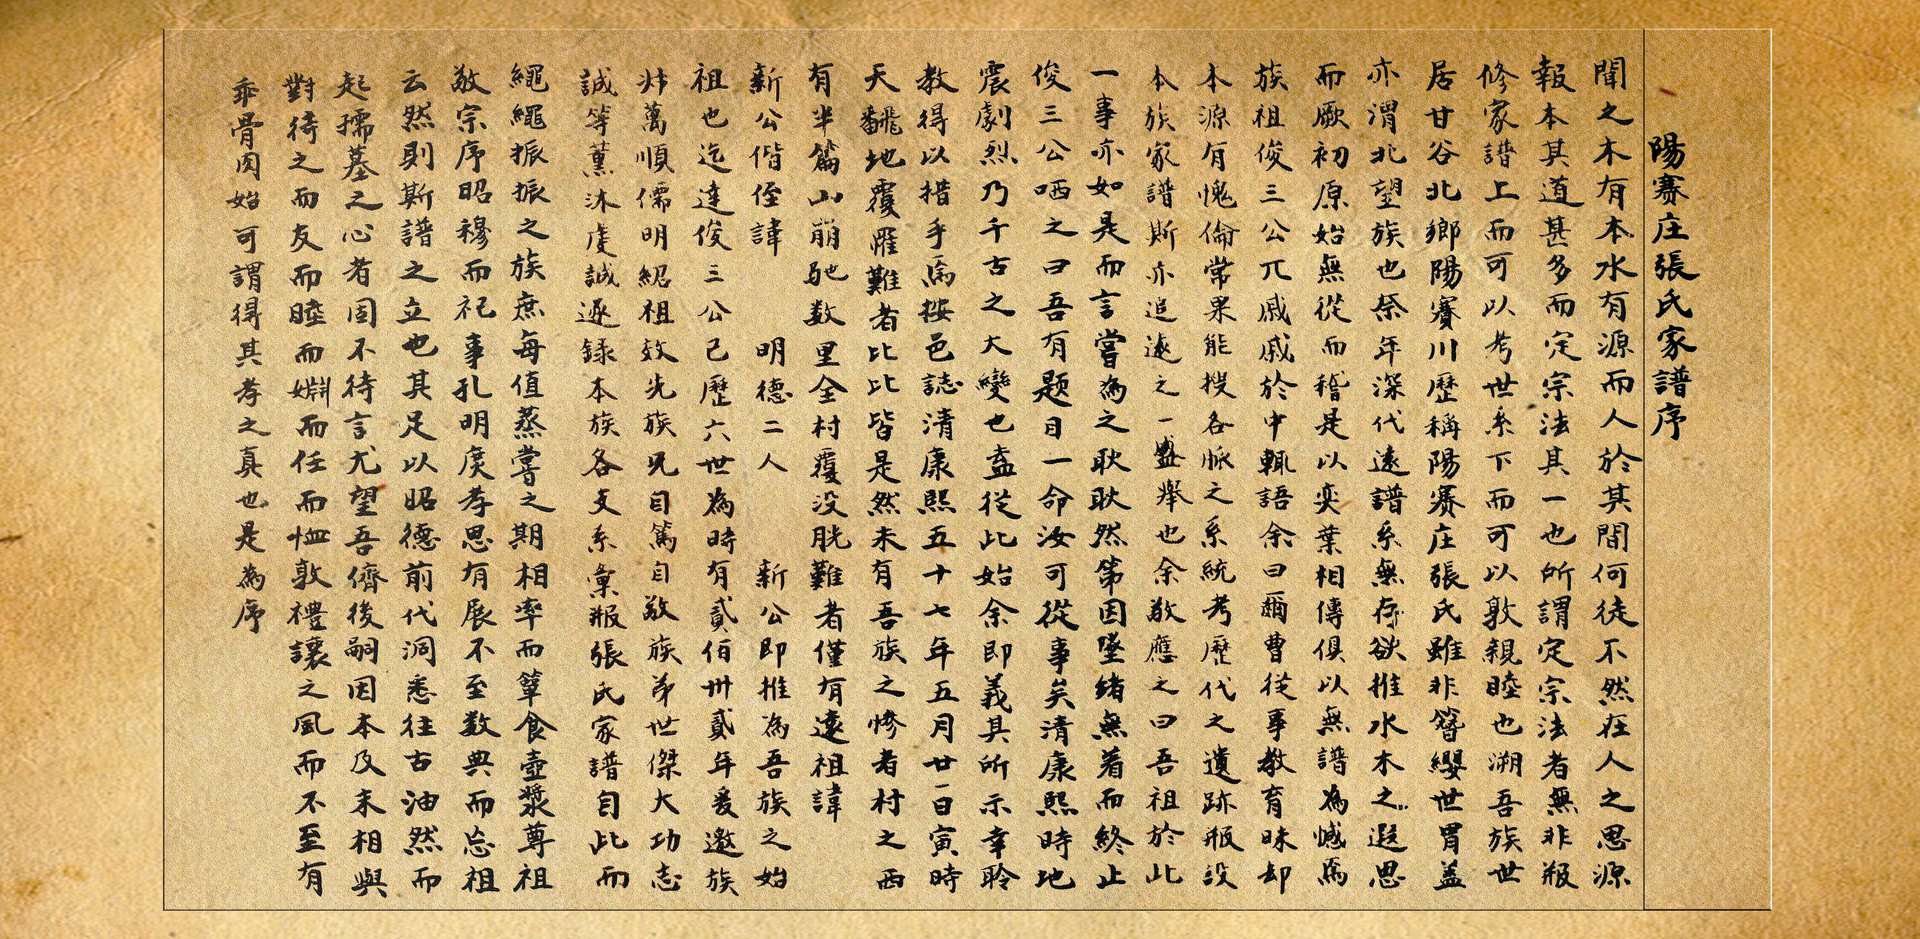 陽賽庄張氏家譜序
聞之木有本水有源而人於其間何徒不然在人之思源
報本其道甚多而定宗法其一也所謂定宗法者無非報
修家譜上而可以考世系下而可以敦親睦也溯吾族世
居甘谷北鄉陽賽川歷稱陽賽庄張氏雖非簪纓世胃盖
亦渭北望族也祭年深代遠譜系無存欲推水木之遐思
而厥初原始無從而稽是以奕葉相傳俱以無譜為憾焉
族祖俊三公兀戚戚於中輒語余曰爾曹從事教育昧却
本源有愧倫常果能搜各脈之系統考歷代之遺跡報設
本族家譜斯亦追遠之一盛舉也余敬應之曰吾祖於此
一事亦如是而言嘗為之耿耿然第因墜緒無着而終止
俊三公哂之曰吾有題目一命汝可從事矣清康熙時地
震劇烈乃千古之大變也盍從此始余即義其所示幸聆
教得以措手焉按邑誌清康熙五十七年五月廿一日寅時
天翻地覆罹難者比比皆是然未有吾族之慘者村之西
有半篇山崩馳数里全村覆没脱難者僅有遠祖諱
新公偕侄諱 明德二人 新公即推為吾族之始
祖也迄達俊三公已歷六世為時有貳佰卅貳年爰邀族
萬順儒明紹祖效先族兄自篤自敬族弟世傑大功志
誠等薰沐虔誠逐録本族各支系彙報張氏家譜自此而
繩繩振振之族庶每值蒸嘗之期相率而簞食壺漿尊祖
敬宗序昭穆而祀事孔明庚孝思有展不至数典而忘祖
云然則斯譜之立也其足以昭德前代洞悉往古油然而
起孺慕之心者固不待言尤望吾儕後嗣因本及末相與
對待之而友而睦而婣而任而恤敦禮讓之風而不至有
乖骨肉始可謂得其孝之真也是為序